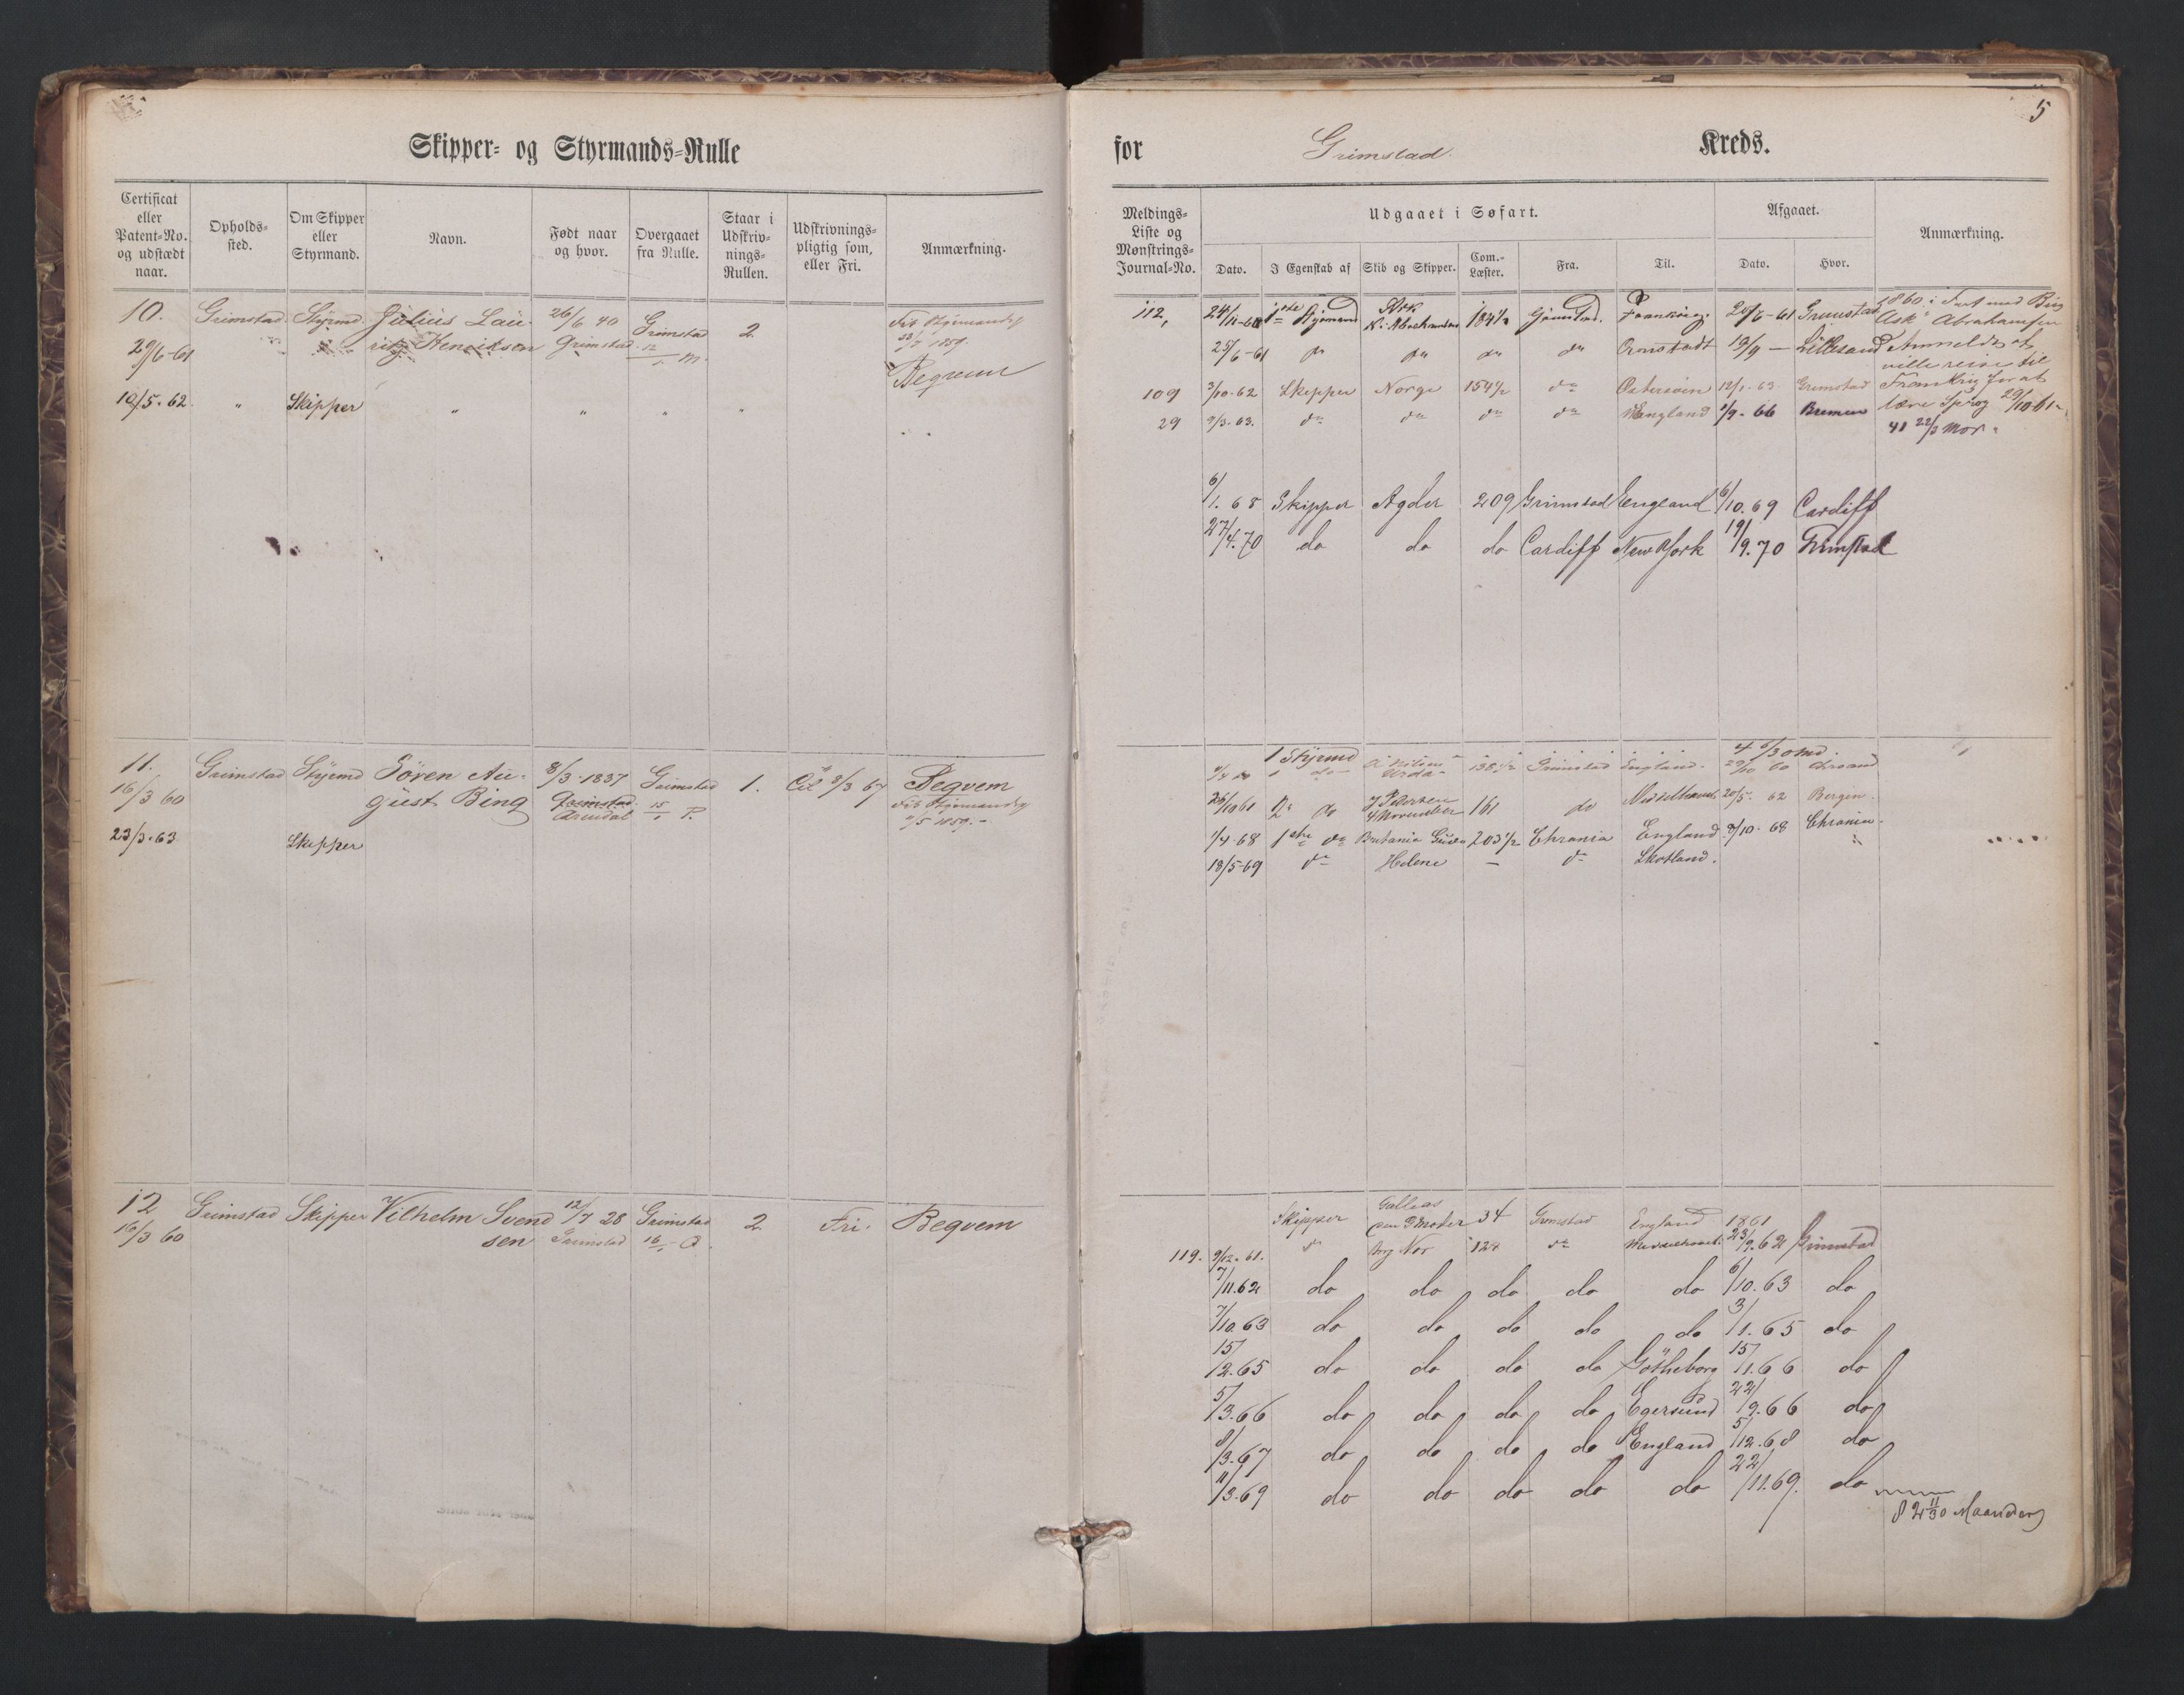 Skipper- og Styrmands-Rulle
Certificat eller Patent-No. og udstædt naar.
Opholds-sted.
Om Skipper eller Styrmand.
Navn.
Født naar og hvor.
Overgaaet fra Rulle.
Staar i Udskriv-nings-Rullen.
Udskrivnings-pligtig som, eller Fri.
Anmærkning.
10. Grimstad Styrmd. Julius Lau- 26/6 40 Grimstad 2.
29/6-61 ritz Henriksen Grimstad 12/1 m.
1859.
Beqvem
10/5.62. " Skipper " " " "
11. Grimstad Styrmd Sören Au- 8/3-1837 Grimstad 1. Beqvem
16/3 60 gust Bing Grimstad 15/1 P.
Arendal
/5 1859.-
23/3.63 Skipper
12 Grimstad Skipper Vilhelm Svend 12/7 28 Grimstad 2. Fri. Beqvem
16/3 60 sen Grimstad 16/1 Q.
5
for Grimstad Kreds.
Meldings-Liste og Mønstrings-Journal-No.
Udgaaet i Søfart.
Dato.
I Egenskab af
Skib og Skipper.
Com.-Læster.
Fra.
Til.
Afgaaet.
Dato.
Hvor.
Anmærkning.
112, 1ste Styrmand Ask 184½ Grimstad. Frankrig. 20/6-61 Grimstad
N. Abrahamsen
25/6-61 do do do do 19/9 — Lillesand
109 3/10.62 Skipper Norge 154½ do Østersøen 12/1.63. Grimstad
29 9/3.63. do do do do England 1/9.66 Bremen
1860 i Fart med Brig
Ask Abrahamsen
Anmeldt at
ville reise til
Frankrig for at
lære Sprog 29/10-61
41 22/3 Mdr.
6/1.68 Skipper Agder 209 Grimstad England 6/10.69 Cardiff
27/4.70 do do do Cardiff New York 19/9.70 Grimstad
1 Styrmd 138½ Grimstad England.
26/10 61 2 do 4 November 161 do 20/5.62 Bergen.
1/4.68 1ste do 203½ Chrania England 9/10.68 Chrania.
18/5-69 do Helene — do Skotland.
Skipper 34 Grimstad England 1861
119. 9/12.61. do Brig Nor 124 do 23/9.62 Grimstad
7/11.62 do do do do do 6/10.63 do
7/10.63 do do do do do 3/1.65 do
15/12.65 do do do do Götheborg 15/11.66 do
5/3.66 do do do do Egersund 22/9.66 do
8/3.67 do do do do England 5/12.68 do
11/3.69 do do do do do 22/11.69. do
82 11/30 Maaneder